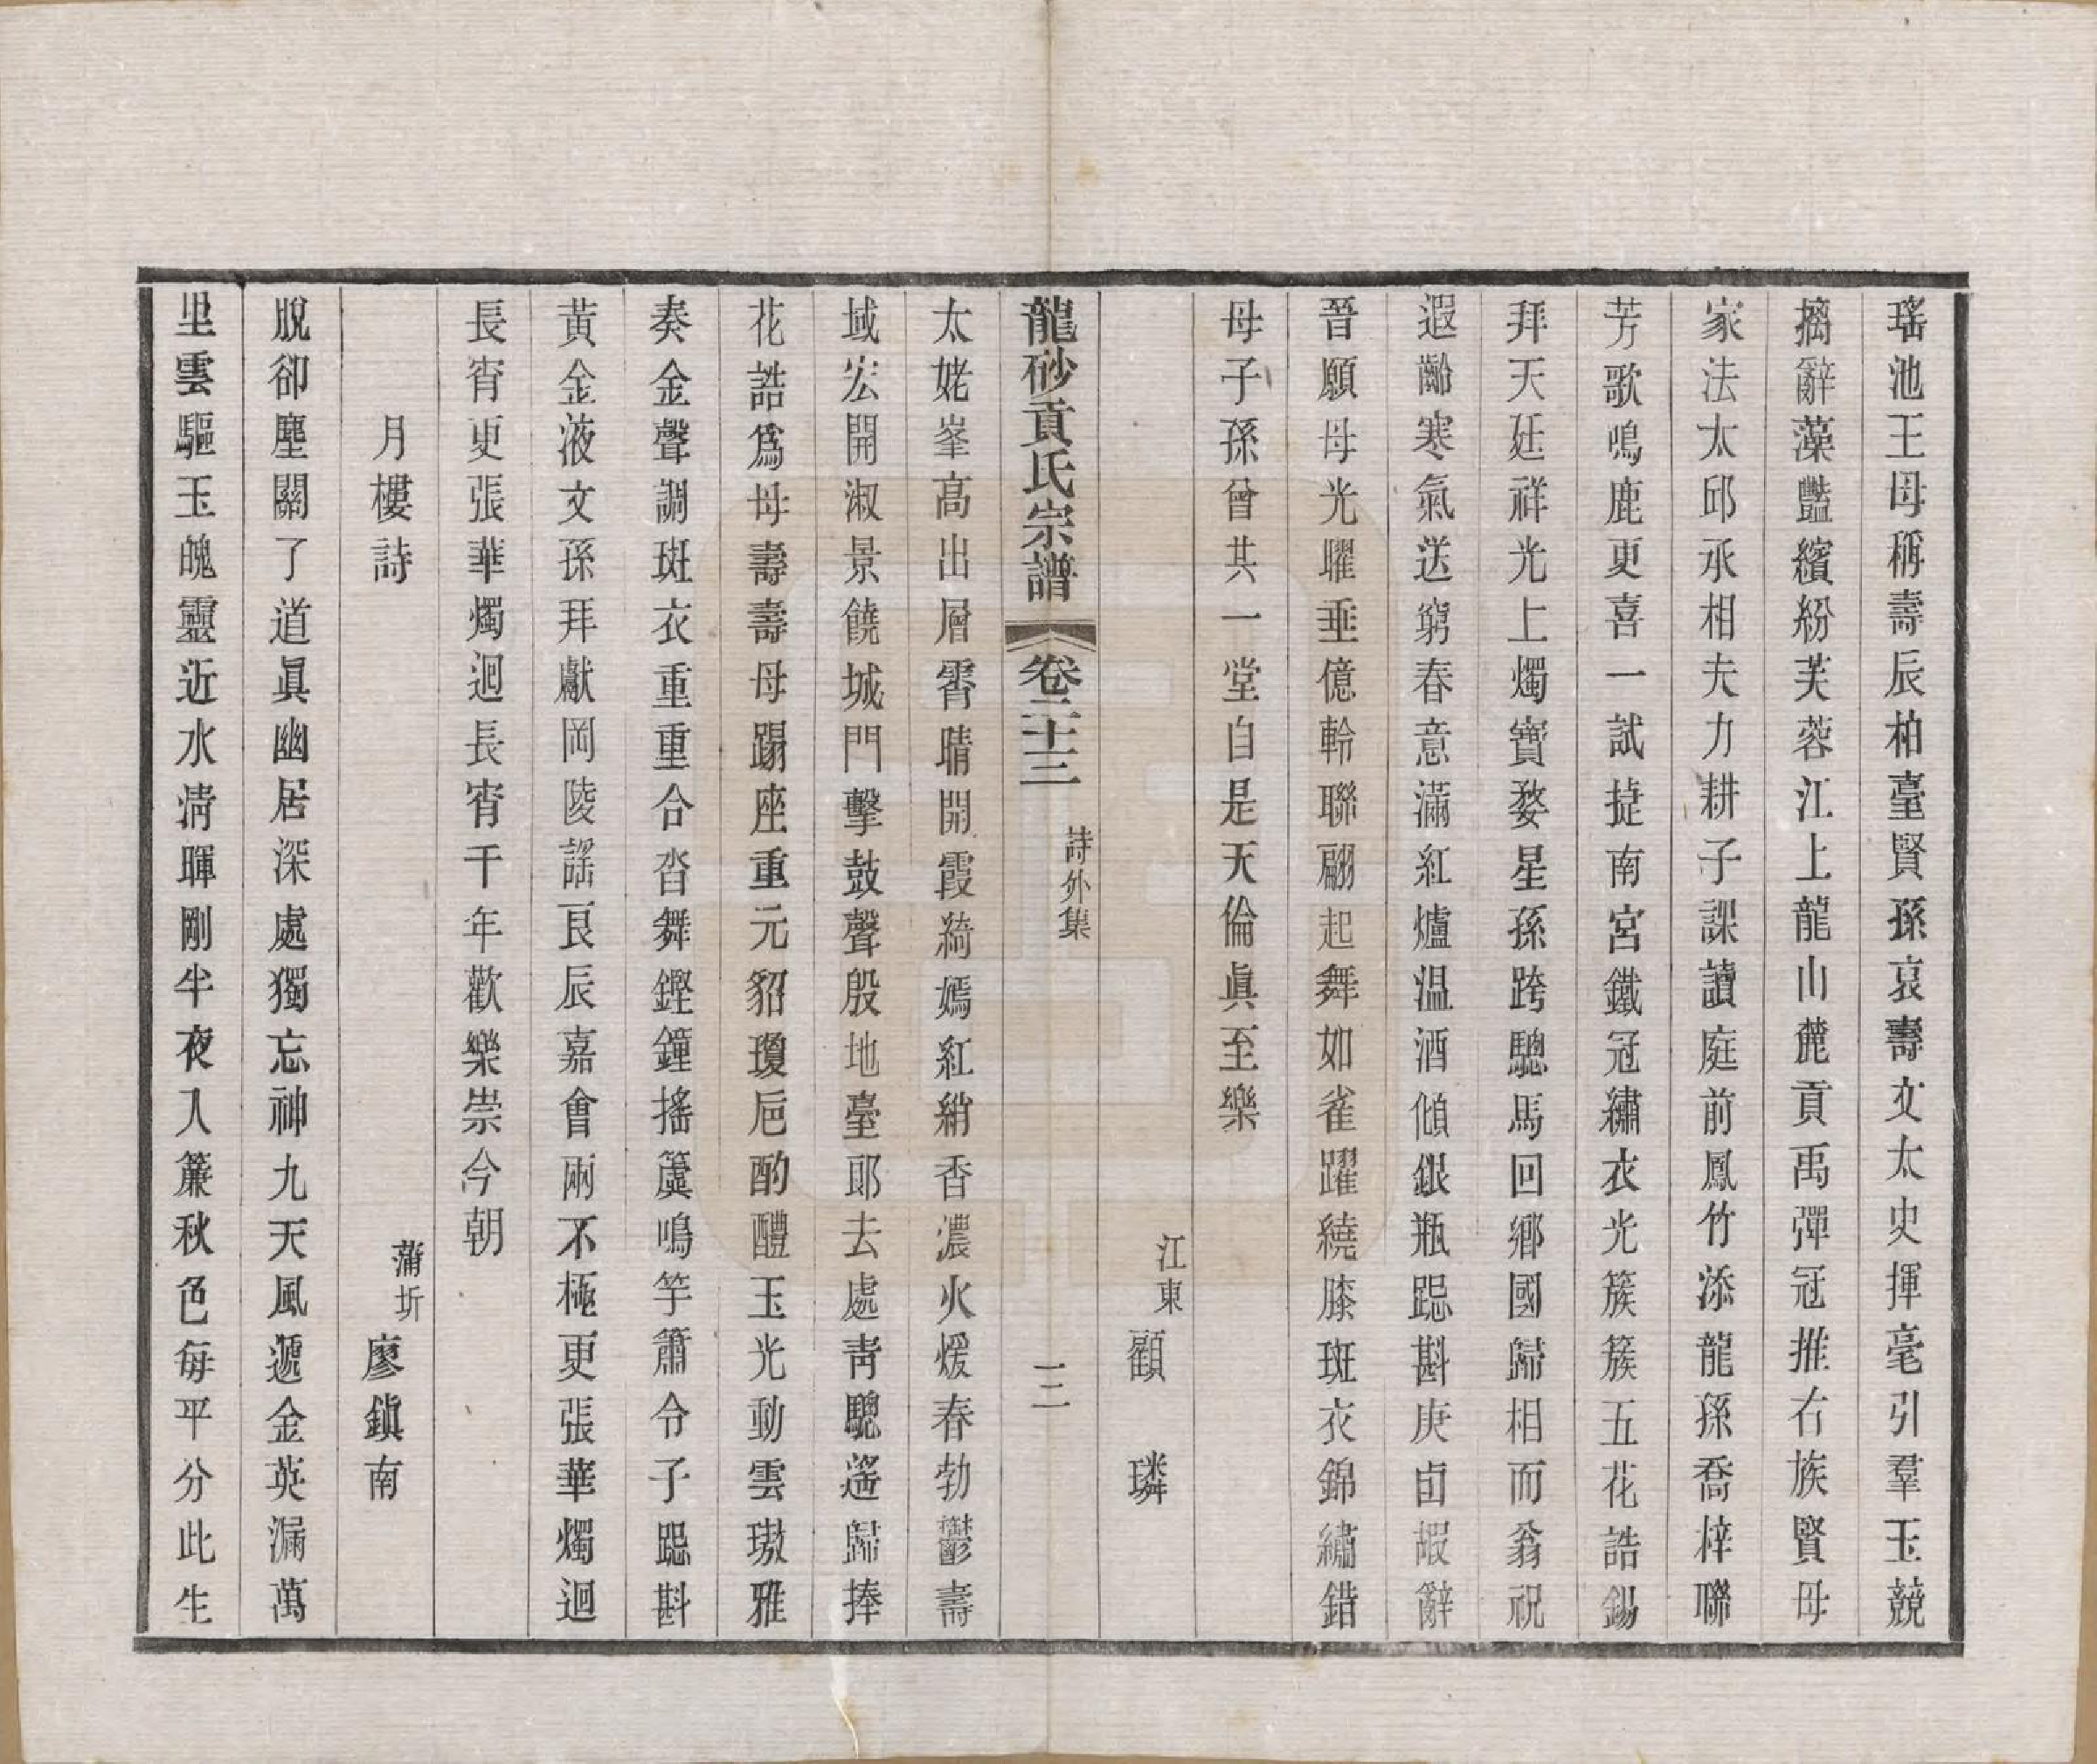 瑤池王母稱壽辰柏臺賢孫哀壽文太史揮毫引羣玉競
摛辭藻豔繽紛芙蓉江上龍山麓貢禹彈冠推右族賢母
家法太邱承相夫力耕子課讀庭前鳳竹添龍孫喬梓聯
芳歌鳴鹿更喜一試捷南宮鐵冠繡衣光簇簇五花誥錫
拜天廷祥光上燭寶婺星孫跨驄馬回鄉國歸相而翁祝
遐齡寒氣送窮春意滿紅爐温酒傾銀瓶跽斟庚卣嘏辭
晉願母光曜垂億齡聯翩起舞如雀躍繞膝斑衣錦繡錯
母子孫曾共一堂自是天倫眞至樂
江東 顧 璘
龍砂貢氏宗譜 卷二十三 詩外集 二
太姥峯高出層霄晴開霞綺嫣紅綃香濃火煖春勃鬱壽
域宏開淑景饒城門擊鼓聲殷地臺郎去處靑驄遙歸捧
花誥爲母壽壽母踢座重元貂瓊巵酌醴玉光動雲璈雅
奏金聲調斑衣重重合沓舞鏗鐘搖簴鳴竽簫令子跽斟
黃金液文孫拜獻岡陵謡良辰嘉會兩不極更張華燭迴
長宵更張華燭迴長宵千年歡樂崇今朝
月樓詩
蒲圻 廖鎮南
脫卻塵關了道眞幽居深處獨忘神九天風遞金英漏萬
里雲驅玉魄靈近水淸暉剛半夜入簾秋色每平分此生